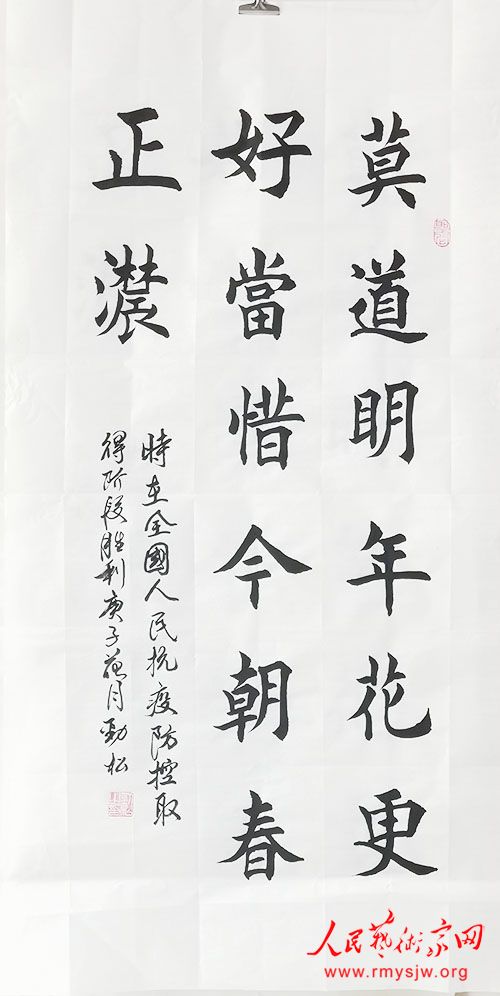 莫道明年花更
好當惜今朝春
正濃
時在全國人民抗疫防控取
得阶段胜利庚子花月勁松
人民藝術家网
www.rmysjw.org